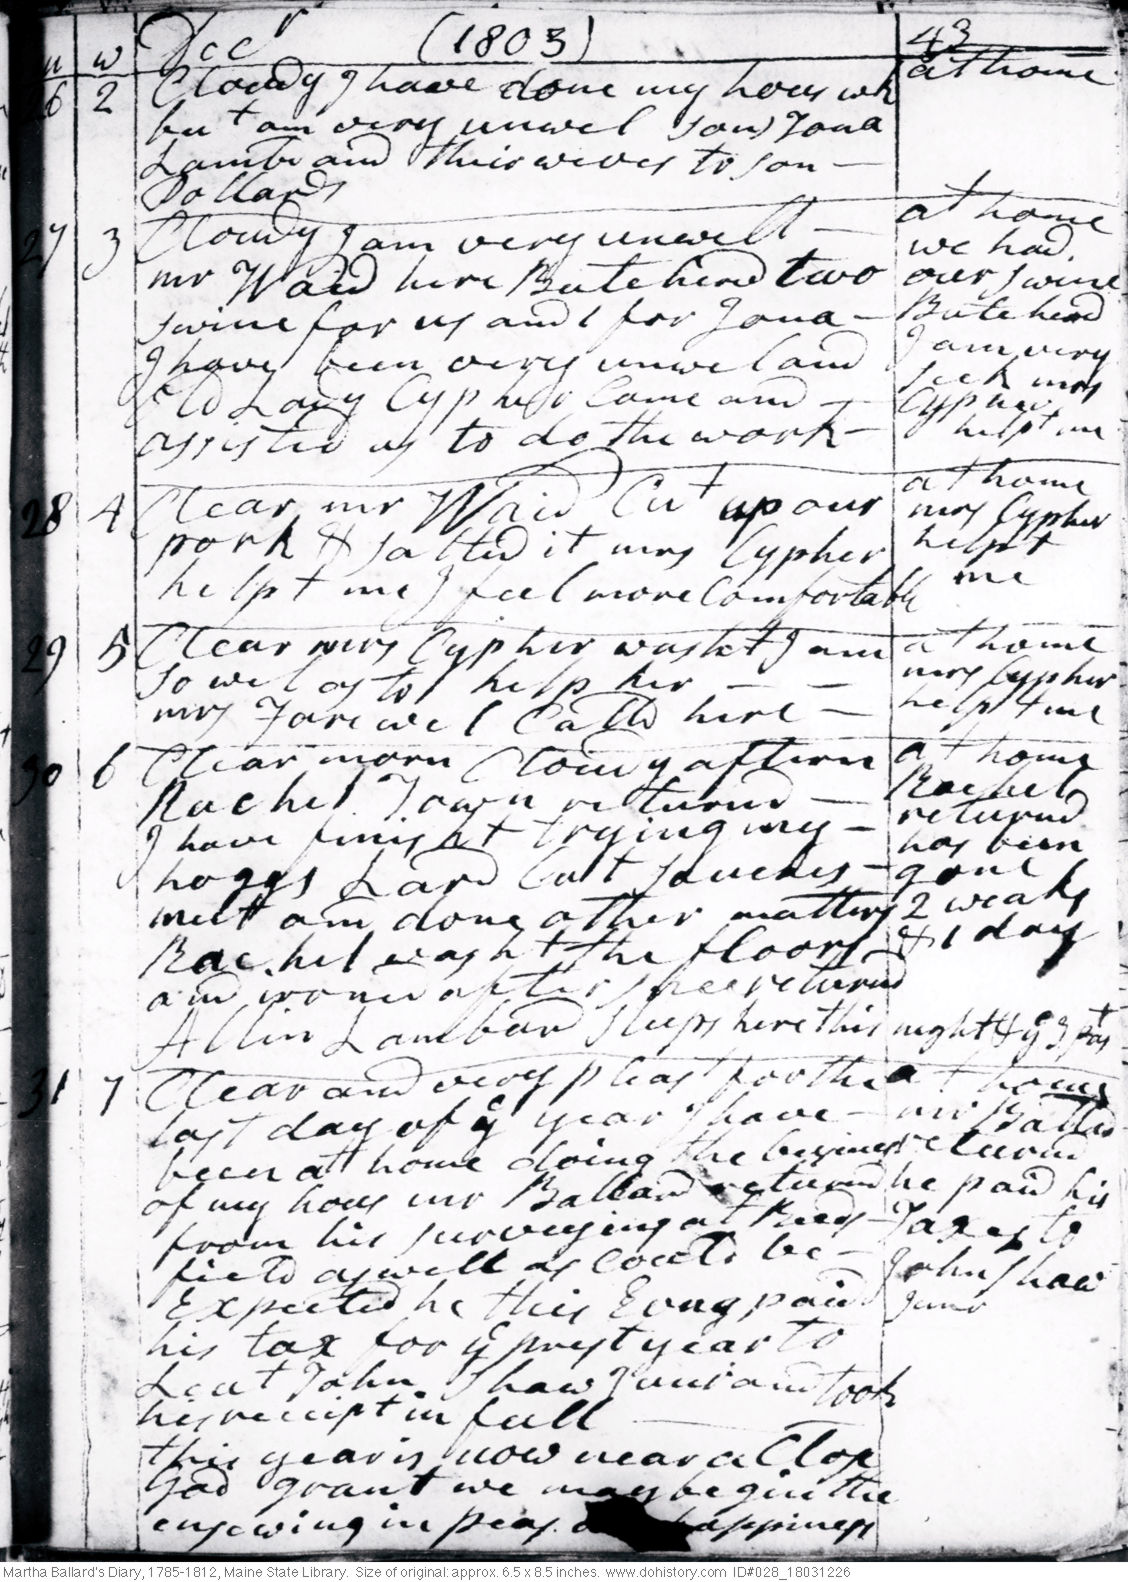 m w Decr (1803) 43
26 2 Cloudy I have done my hous wk at home
but am very unwel sons Jona
Lambd and their wives to son –
Pollards
27 3 Cloudy I am very unwell – at home
mr Waid here Butcherd two we had
swine for us and 1 for Jona – our swine
I have been very unwel and Butcherd
Old Lady Cypher Came and – I am very
assisted us to do the work – sick mrs
Cypher
helpt me
28 4 Clear mr Waid Cut up our at home
pork & salted it mrs Cypher mrs Cypher
helpt me I feel more Comfortable helpt
me
29 5 Clear mrs Cypher washt I am at home
so wel as to help her – – mrs Cypher
mrs Farewel Calld here – helpt me
30 6 Clear morn Cloudy aftern at home
Rachel Town returnd – Rachel
I have finisht trying my – returnd
hoggs Lard Cut sauches – has been
meet am done other matters gone
Rachel washt the floors 2 weaks
and ironed after shee returnd & 1 day
Allin Lambard sleeps here this night & ye 3 past
31 7 Clear and very pleast for the at home
last day of ye year I have – mr Ballad
been at home doing the beziness returnd
of my hous mr Ballard returnd he paid his
from his surveying at Reeds – Taxes to
field as well as could be – John Shaw
Expected he this Evng paid Junr
his tax for ye prest year to
Leut John Shaw Junr and took
his receipt in full –
this year is now near a Close
God grant we may begin the
ensewing in peas happiness
Martha Ballard's Diary, 1785-1812, Maine State Library. Size of original: approx. 6.5 x 8.5 inches. www.dohistory.com ID#028_18031226